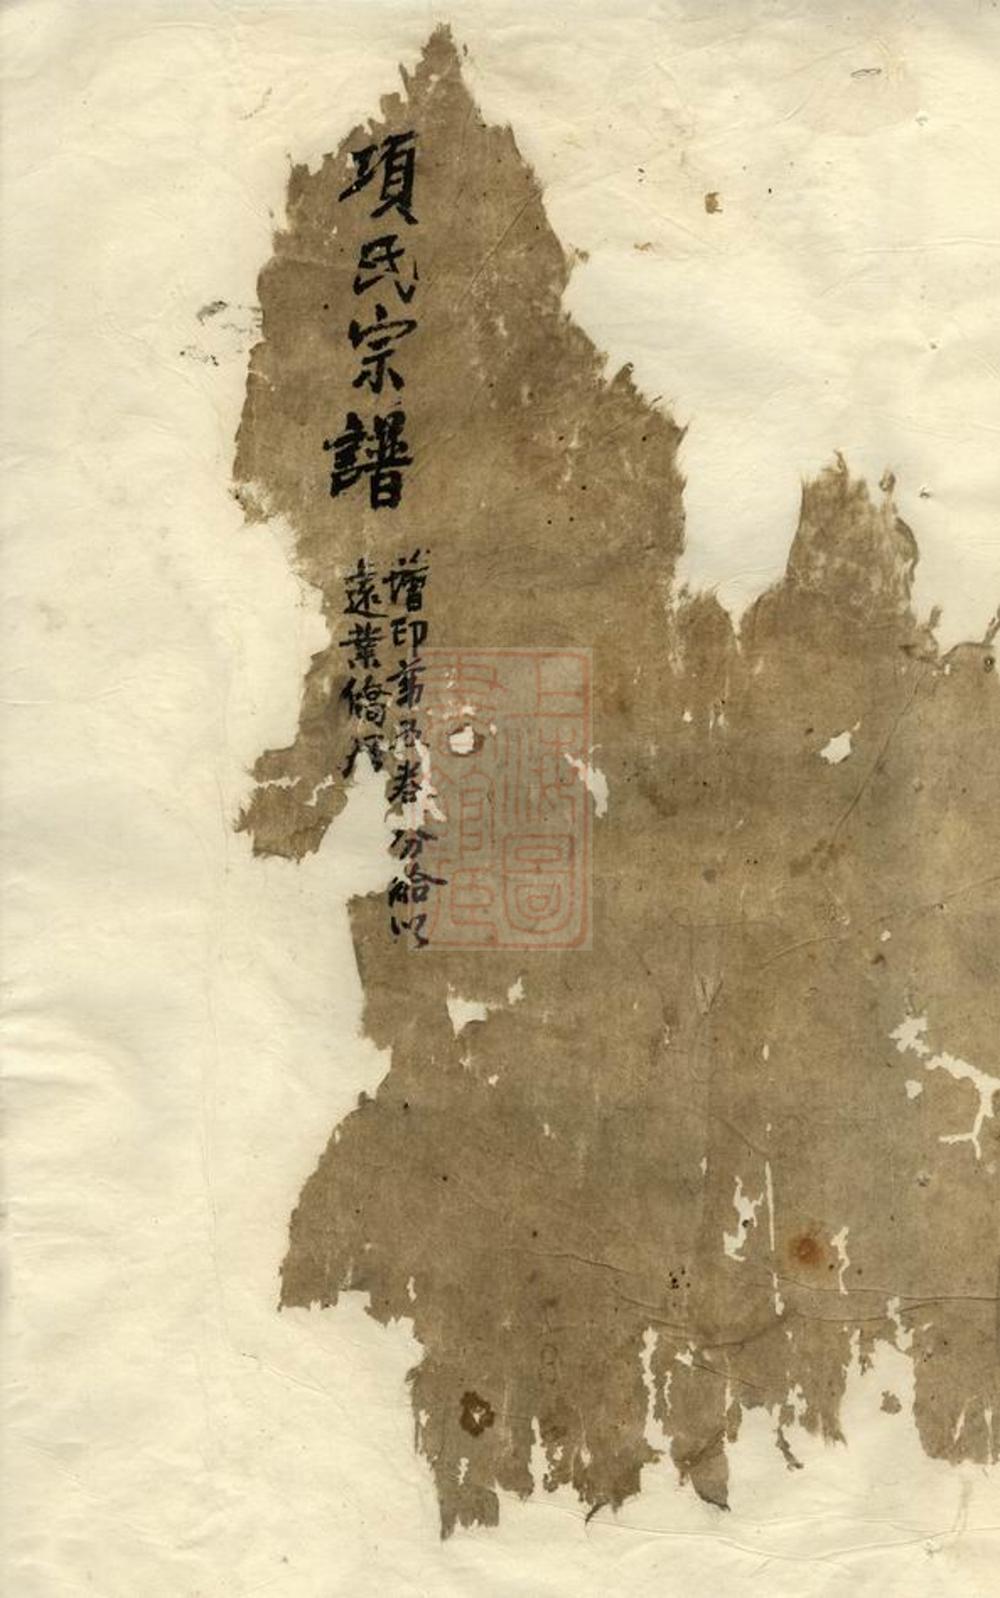 項氏宗譜
增印第五卷分給以
遠業僑居
上海圖
書館藏